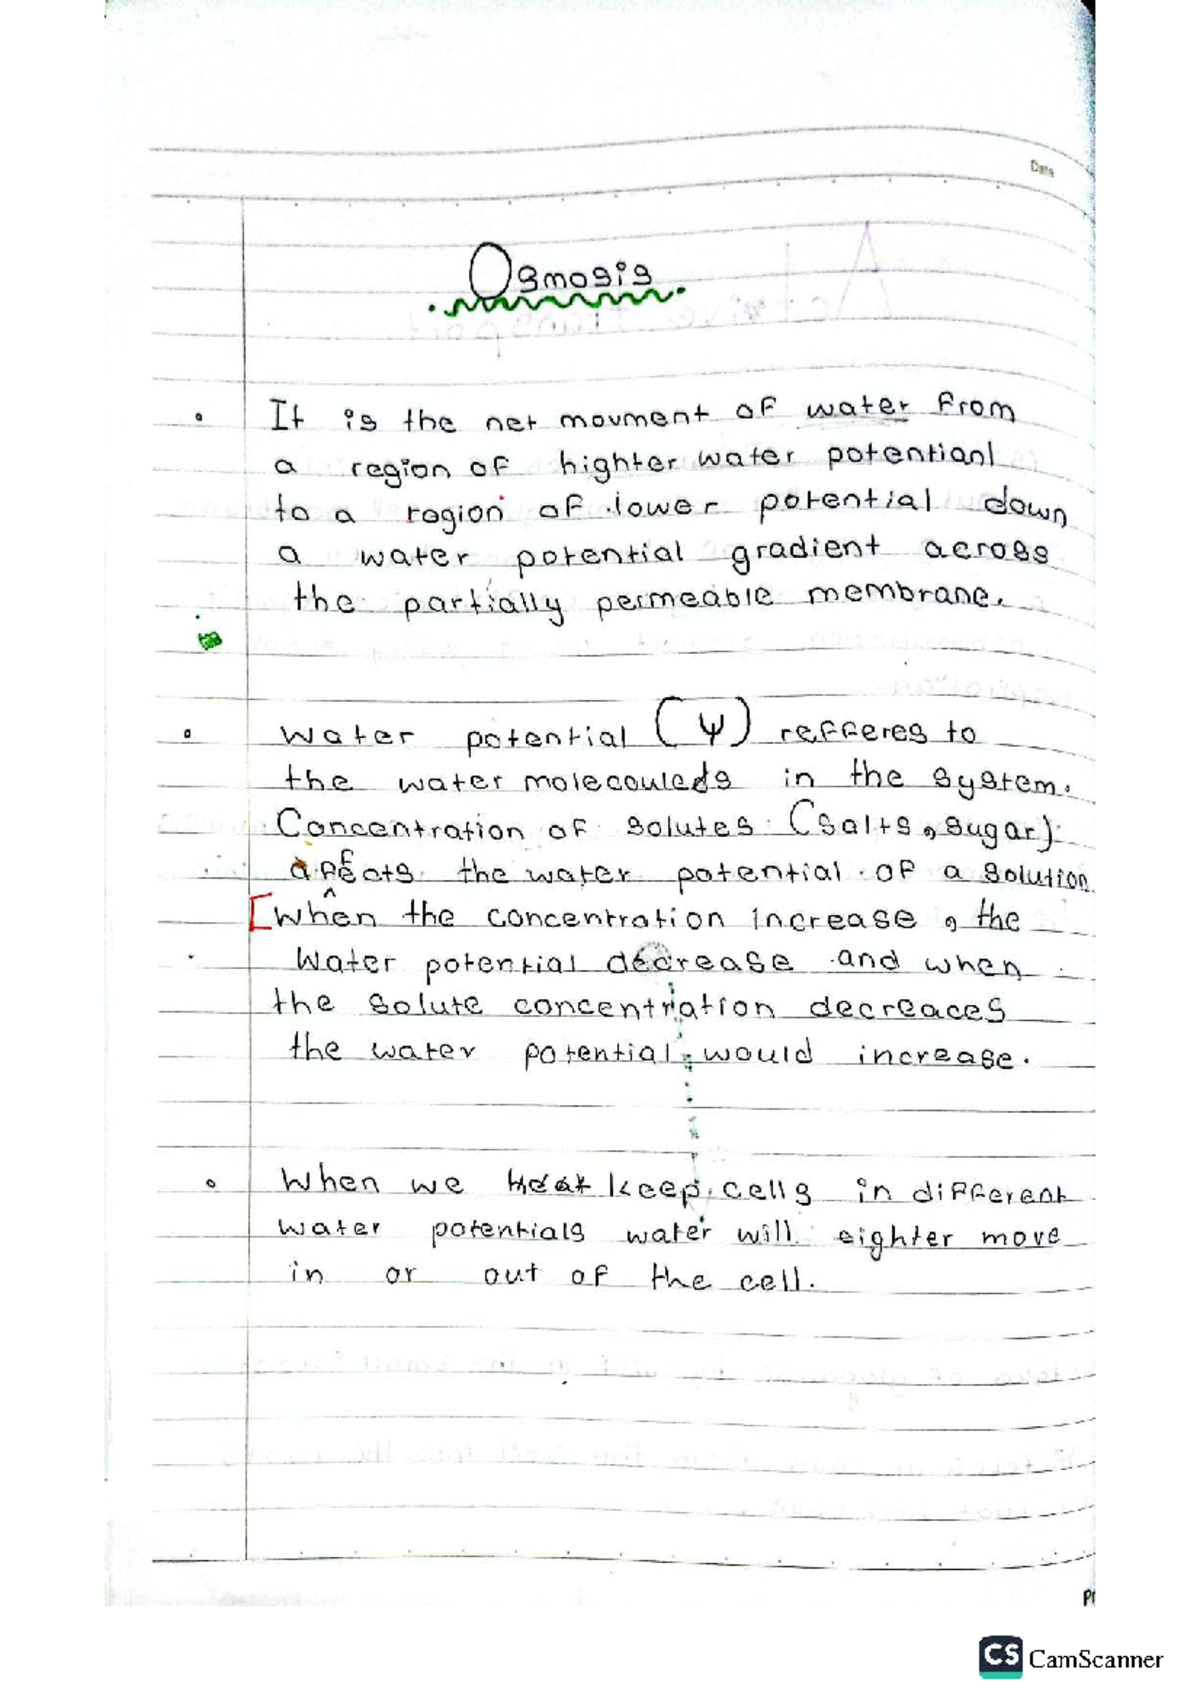 Date
Osmosis
It is the net movment of water from
a region of highter water potentianl
to a rogion of lower potential down
a water potential gradient across
the partially permeable membrane.
Water potential (Ψ) refferes to
the water molecouleds in the system.
Concentration of solutes (salts, sugar)
affects the water potential of a solution
[when the concentration increase, the
Water potential decrease and when
the solute concentration decreaces
the water potential would increase.
When we keep cells in different
water potentials water will eighter move
in or out of the cell.
CS CamScanner